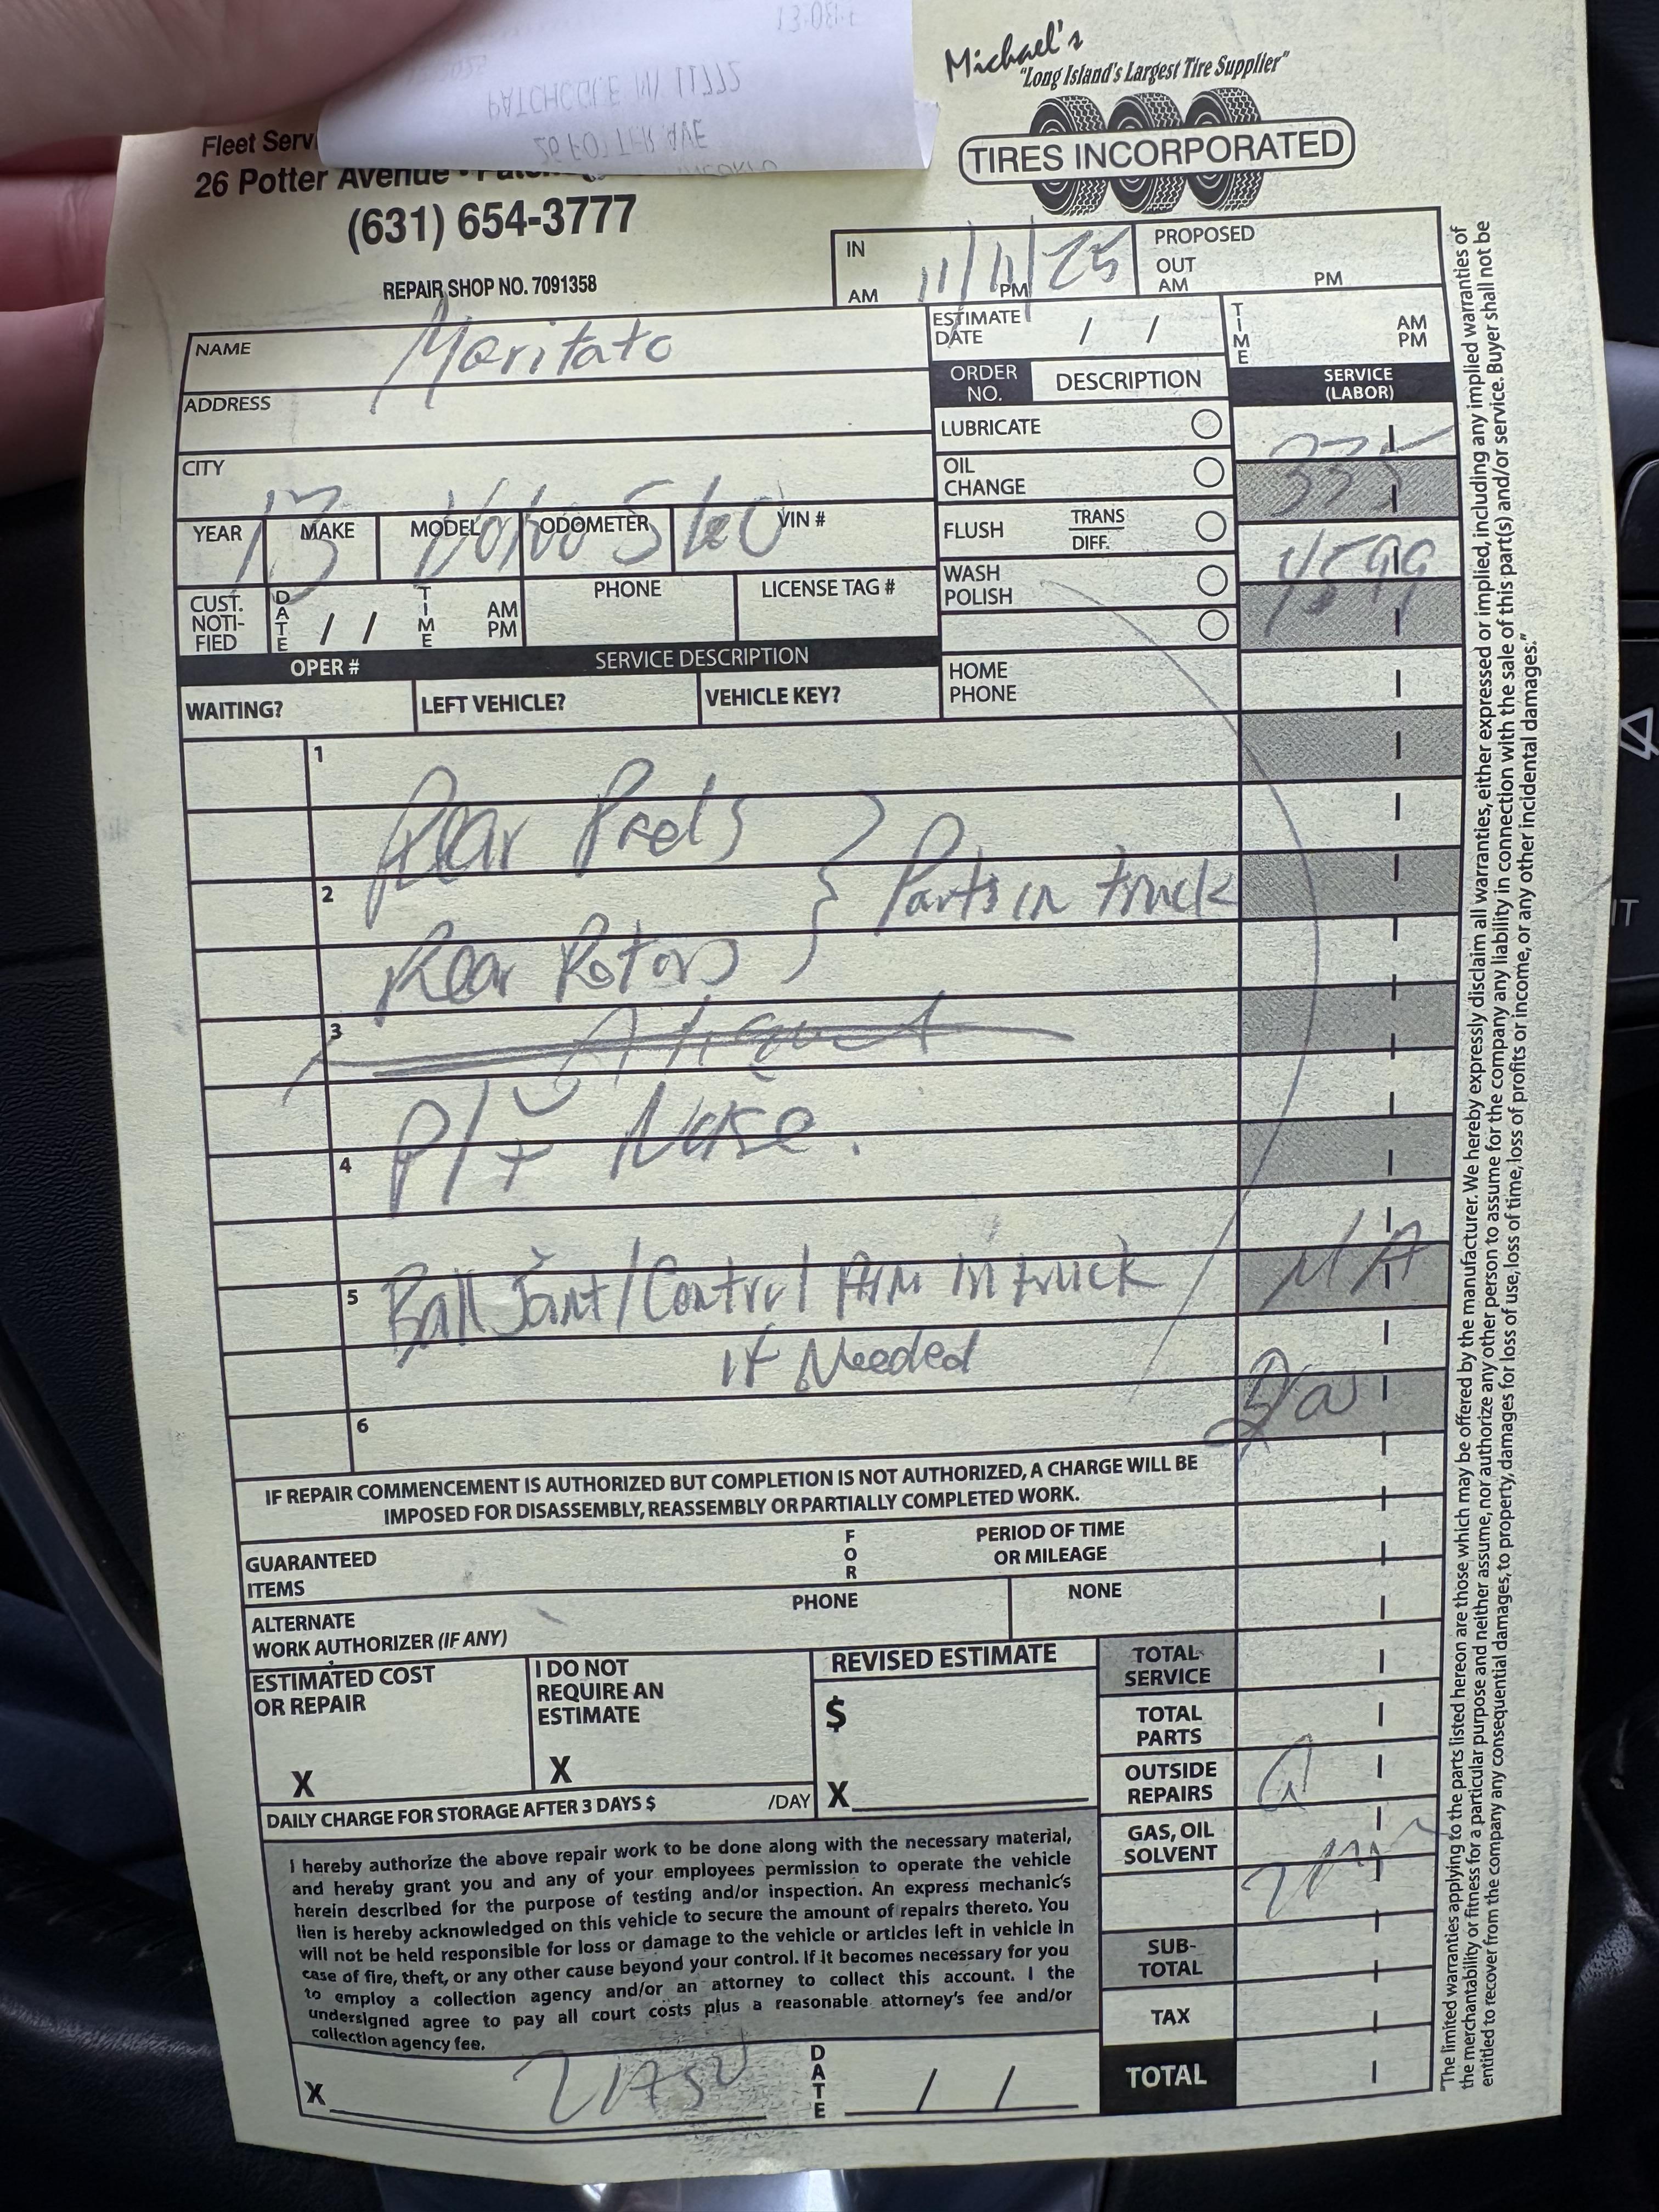 Michael's
"Long Island's Largest Tire Supplier"
TIRES INCORPORATED
PATCHOGUE NY 11772
26 POTTER AVE
Fleet Serv
26 Potter Avenue
(631) 654-3777
REPAIR SHOP NO. 7091358
IN
AM
PM
11/11/25
PROPOSED
OUT
AM
PM
NAME
Moritato
ADDRESS
CITY
ESTIMATE
DATE / /
TIME
AM
PM
ORDER
NO.
DESCRIPTION
SERVICE
(LABOR)
LUBRICATE
OIL
CHANGE
335
FLUSH
TRANS
DIFF.
4599
WASH
POLISH
13 Volvo S60
YEAR MAKE MODEL ODOMETER VIN #
CUST.
NOTI-
FIED
DATE / /
TIME
AM
PM
PHONE
LICENSE TAG #
OPER #
SERVICE DESCRIPTION
HOME
PHONE
WAITING?
LEFT VEHICLE?
VEHICLE KEY?
1
Rear Pads
Parts in truck
2
Rear Rotors
3
4
Noise.
5
Ball Joint/Control Arm in truck
N/A
If Needed
6
IF REPAIR COMMENCEMENT IS AUTHORIZED BUT COMPLETION IS NOT AUTHORIZED, A CHARGE WILL BE
IMPOSED FOR DISASSEMBLY, REASSEMBLY OR PARTIALLY COMPLETED WORK.
GUARANTEED
ITEMS
FOR
PERIOD OF TIME
OR MILEAGE
ALTERNATE
WORK AUTHORIZER (IF ANY)
PHONE
NONE
ESTIMATED COST
OR REPAIR
X
I DO NOT
REQUIRE AN
ESTIMATE
X
REVISED ESTIMATE
$
X
TOTAL
SERVICE
TOTAL
PARTS
OUTSIDE
REPAIRS
GAS, OIL
SOLVENT
SUB-
TOTAL
TAX
TOTAL
DAILY CHARGE FOR STORAGE AFTER 3 DAYS $ /DAY
I hereby authorize the above repair work to be done along with the necessary material,
and hereby grant you and any of your employees permission to operate the vehicle
herein described for the purpose of testing and/or inspection. An express mechanic's
lien is hereby acknowledged on this vehicle to secure the amount of repairs thereto. You
will not be held responsible for loss or damage to the vehicle or articles left in vehicle in
case of fire, theft, or any other cause beyond your control. If it becomes necessary for you
to employ a collection agency and/or an attorney to collect this account. I the
undersigned agree to pay all court costs plus a reasonable attorney's fee and/or
collection agency fee.
X
DATE / /
"The limited warranties applying to the parts listed hereon are those which may be offered by the manufacturer. We hereby expressly disclaim all warranties, either expressed or implied, including any implied warranties of
the merchantability or fitness for a particular purpose and neither assume, nor authorize any other person to assume for the company any liability in connection with the sale of this part(s) and/or service. Buyer shall not be
entitled to recover from the company any consequential damages, to property, damages for loss of use, loss of time, loss of profits or income, or any other incidental damages."